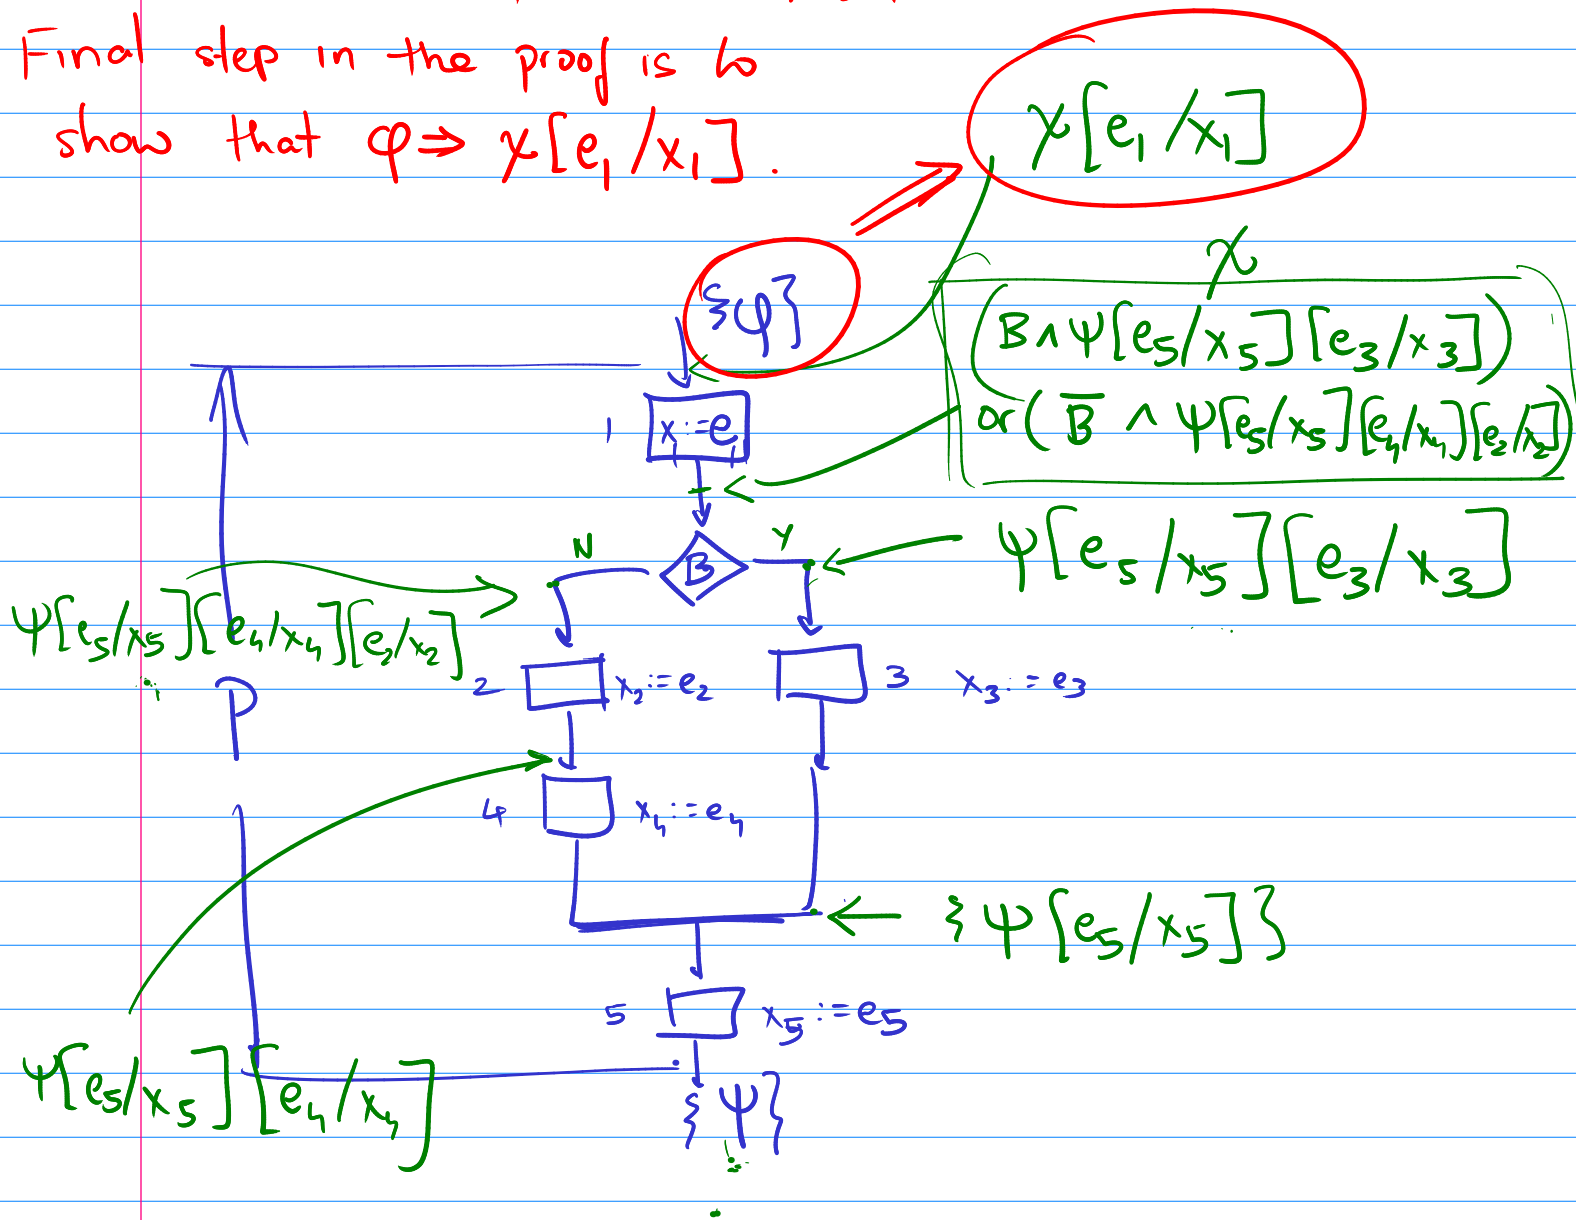 Final step in the proof is to
show that φ ⇒ χ[e₁/x₁].
χ[e₁/x₁]
χ
{φ}
(B ∧ ψ[e₅/x₅][e₃/x₃])
or (B̅ ∧ ψ[e₅/x₅][e₄/x₄][e₂/x₂])
1 x₁:=e₁
N B Y
ψ[e₅/x₅][e₃/x₃]
ψ[e₅/x₅][e₄/x₄][e₂/x₂]
P
2 x₂:=e₂
3 x₃:=e₃
4 x₄:=e₄
{ψ[e₅/x₅]}
5 x₅:=e₅
ψ[e₅/x₅][e₄/x₄]
{ψ}